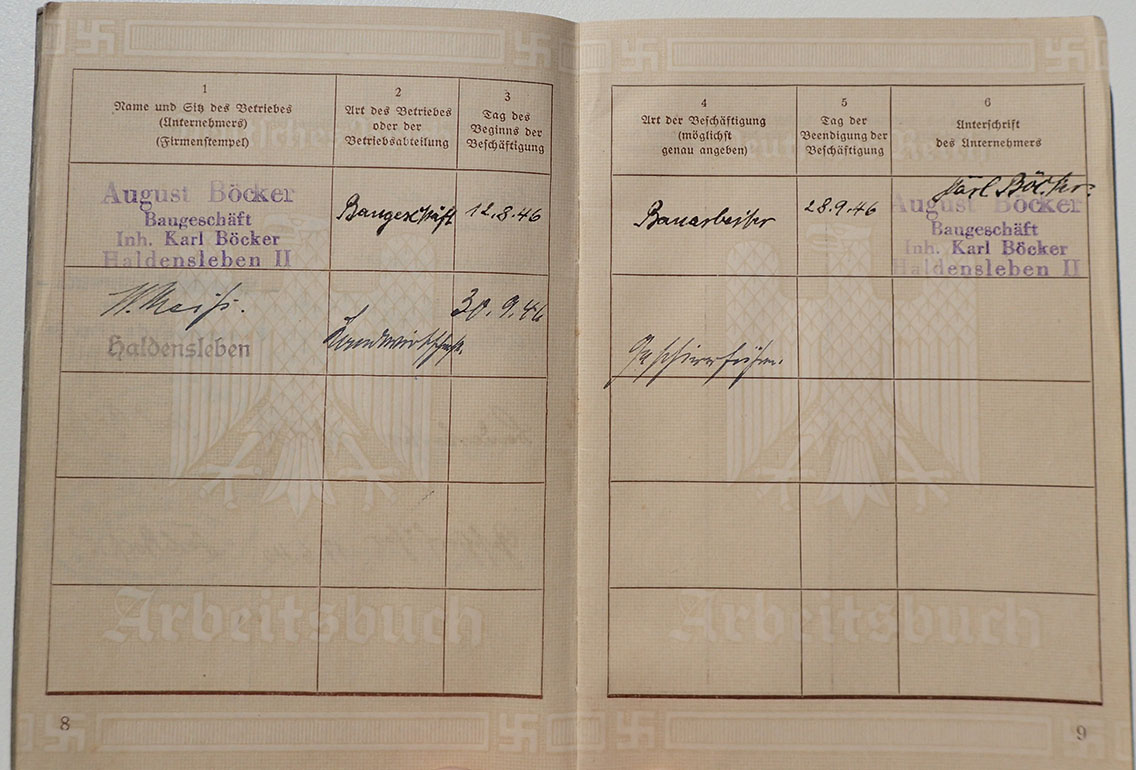 1
Name und Sitz des Betriebes
(Unternehmers)
(Firmenstempel)
2
Art des Betriebes
oder der
Betriebsabteilung
3
Tag des
Beginns der
Beschäftigung
August Böcker
Baugeschäft
Inh. Karl Böcker
Haldensleben II
Baugeschäft
12.8.46
Haldensleben
Landwirtschaft.
30.9.46
Arbeitsbuch
8
4
Art der Beschäftigung
(möglichst
genau angeben)
5
Tag der
Beendigung der
Beschäftigung
6
Unterschrift
des Unternehmers
Bauarbeiter
28.9.46
Karl Böcker
August Böcker
Baugeschäft
Inh. Karl Böcker
Haldensleben II
Geschirrführer.
Arbeitsbuch
9